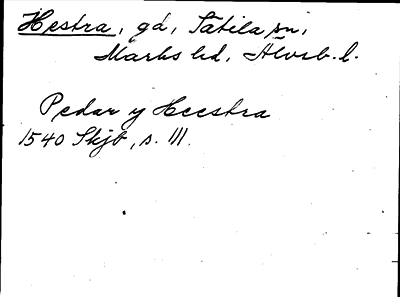 Hestra, gd, Sätila sn,
Marks hd, Älvsb. l.
Pedar y Heestra
1540 Skjb, s. 111.